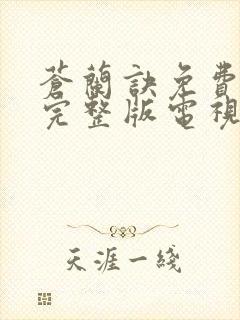 蒼蘭訣免費
完整版電視
天涯一綫